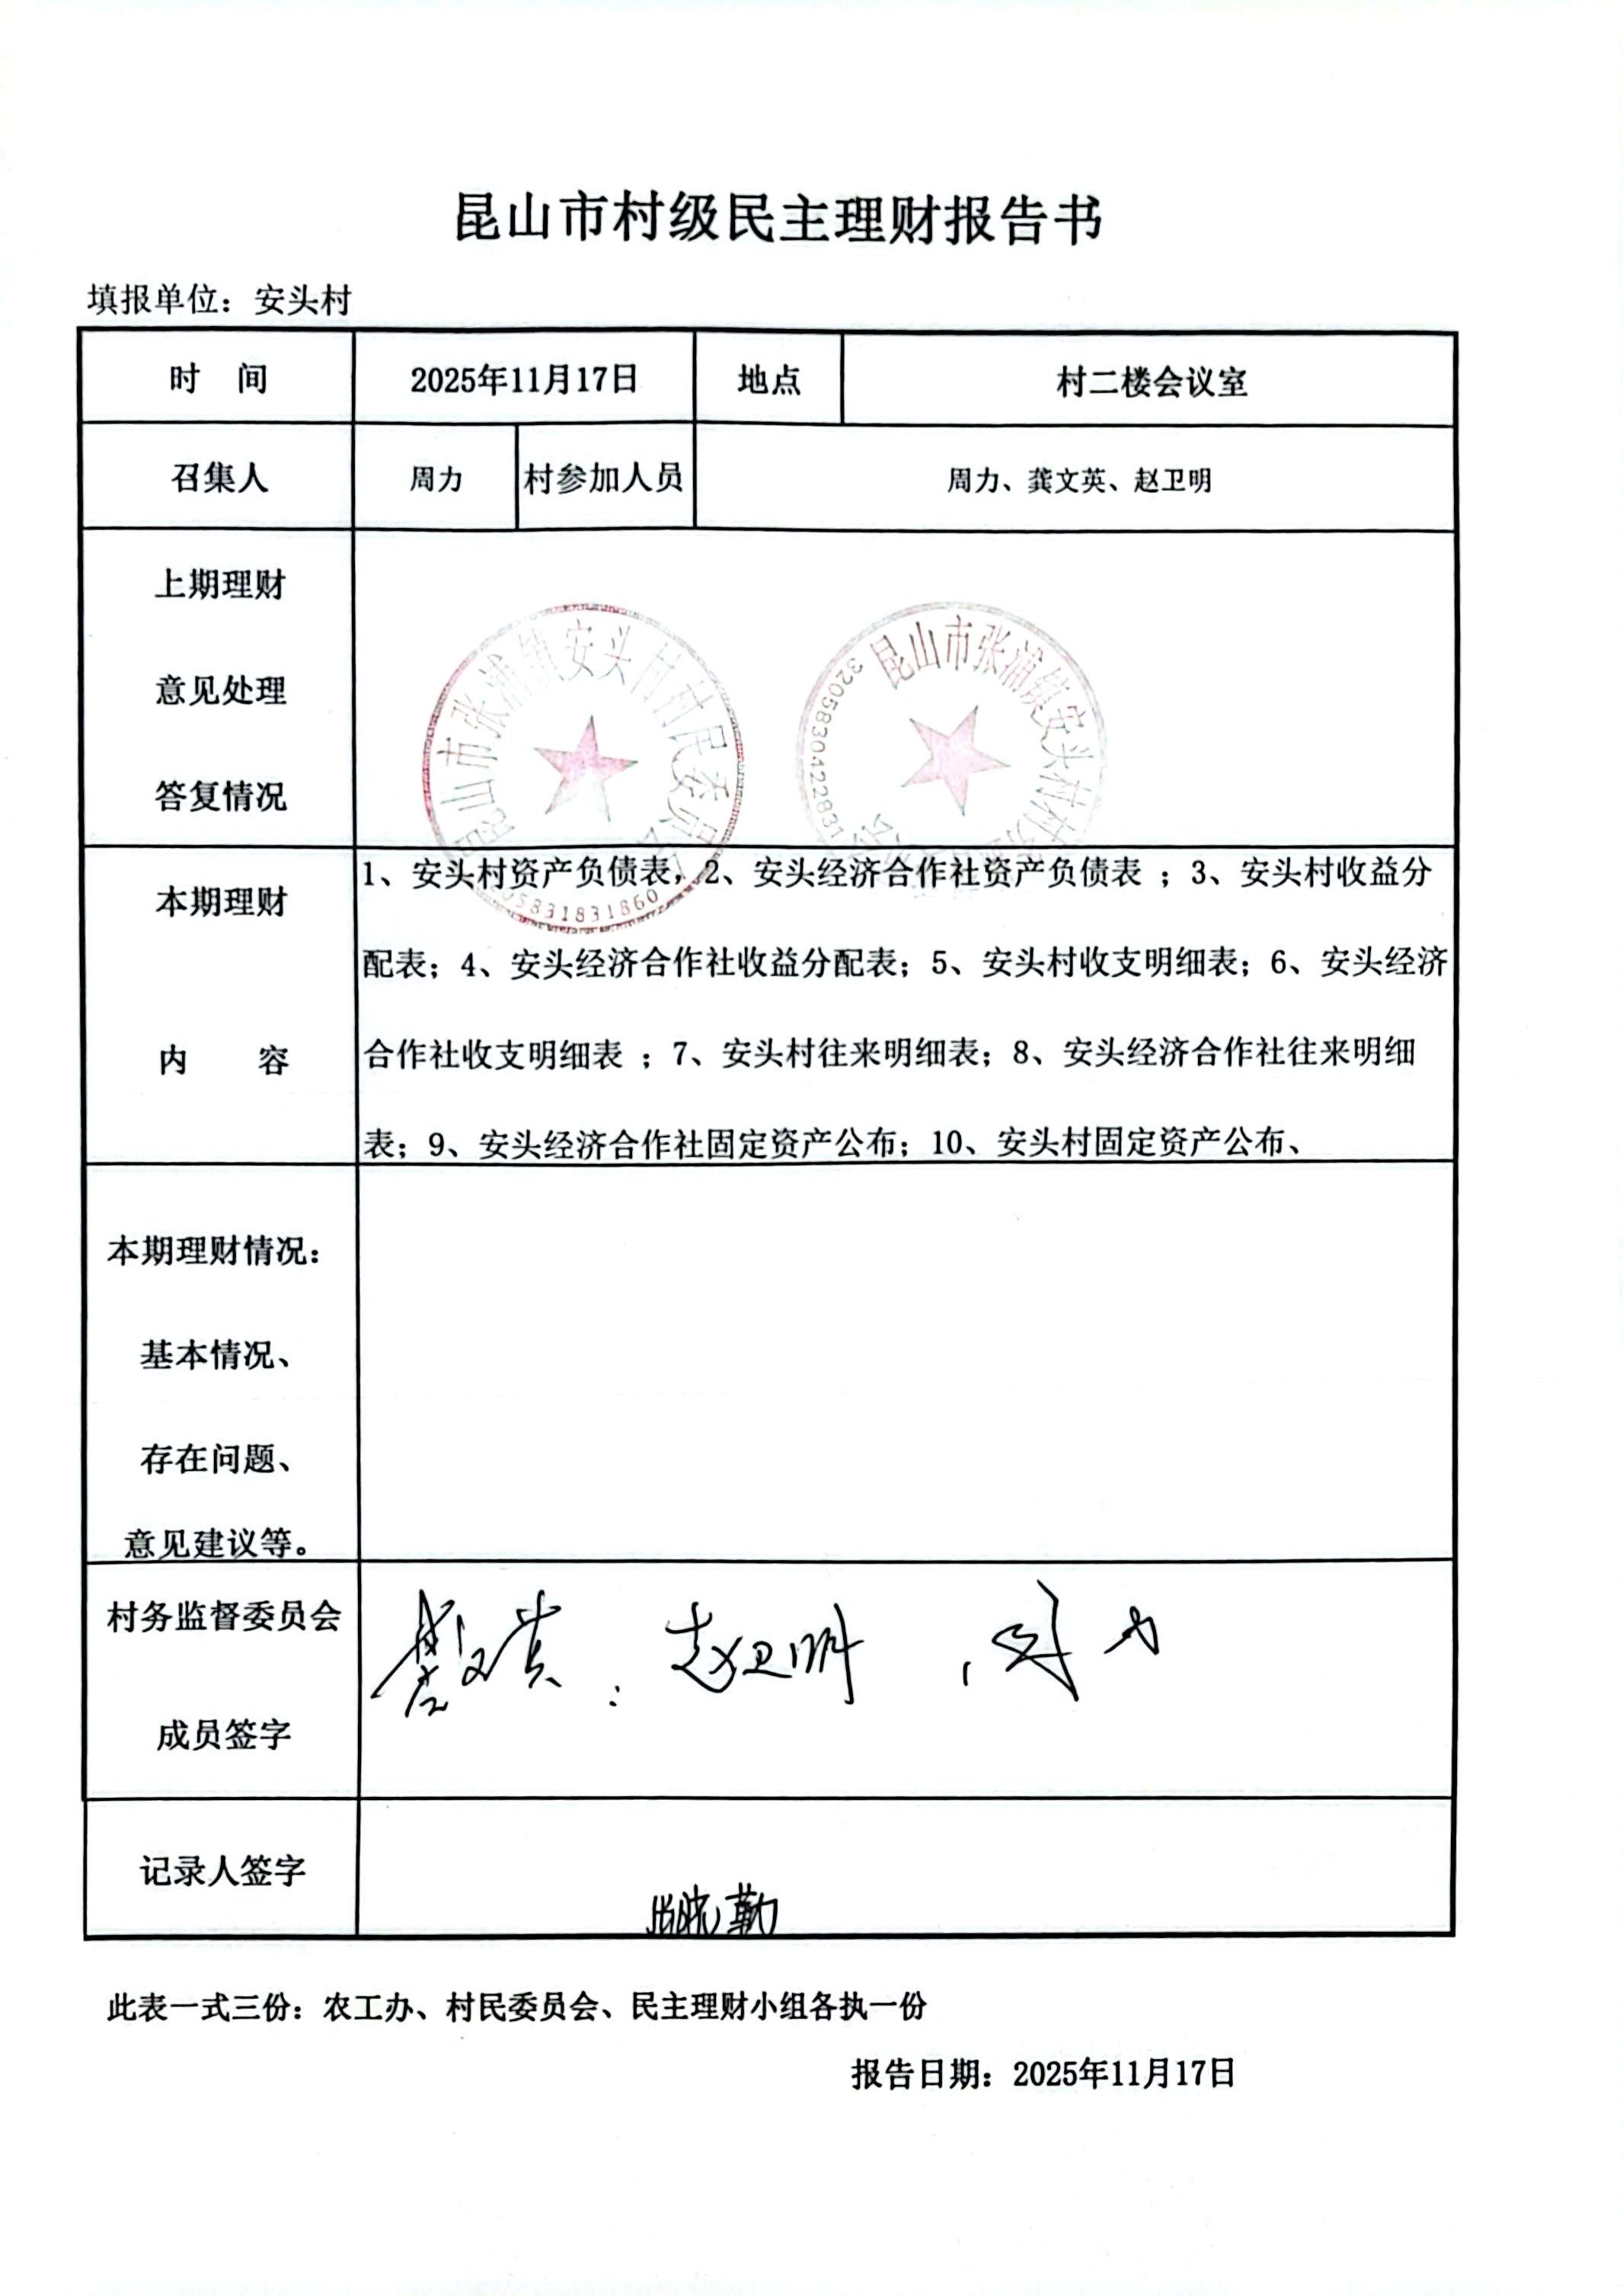 昆山市村级民主理财报告书
填报单位：安头村
时 间 2025年11月17日 地点 村二楼会议室
召集人 周力 村参加人员 周力、龚文英、赵卫明
上期理财
意见处理
答复情况
昆山市张浦镇安头村村民委员会
昆山市张浦镇安头村村
3205830422831
本期理财
内 容
1、安头村资产负债表，2、安头经济合作社资产负债表 ；3、安头村收益分
配表；4、安头经济合作社收益分配表；5、安头村收支明细表；6、安头经济
合作社收支明细表 ；7、安头村往来明细表；8、安头经济合作社往来明细
表；9、安头经济合作社固定资产公布；10、安头村固定资产公布、
本期理财情况：
基本情况、
存在问题、
意见建议等。
村务监督委员会
成员签字
龚文英 赵卫明 周力
记录人签字
此表一式三份：农工办、村民委员会、民主理财小组各执一份
报告日期：2025年11月17日